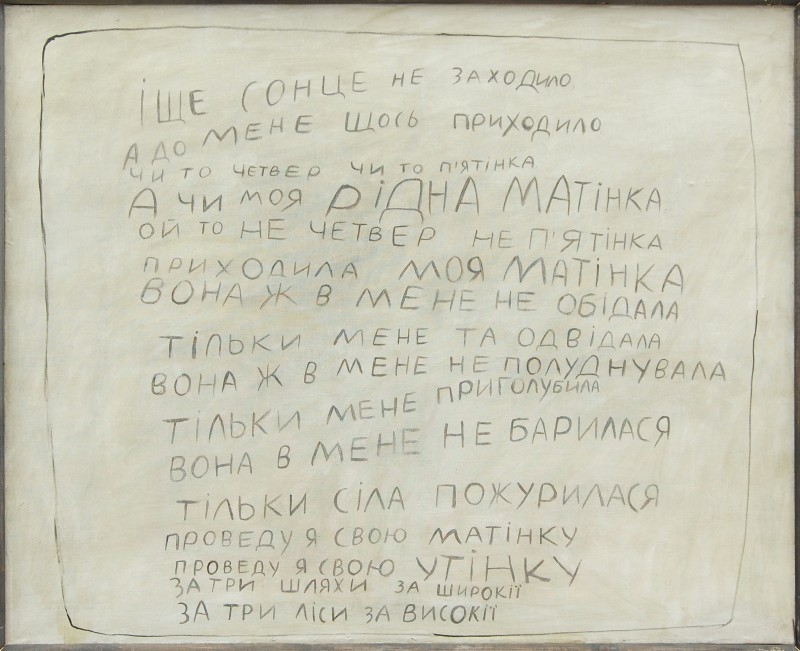 ІЩЕ СОНЦЕ НЕ ЗАХОДИЛО
А ДО МЕНЕ ЩОСЬ ПРИХОДИЛО
ЧИ ТО ЧЕТВЕР ЧИ ТО П'ЯТІНКА
А ЧИ МОЯ РІДНА МАТІНКА
ОЙ ТО НЕ ЧЕТВЕР НЕ П'ЯТІНКА
ПРИХОДИЛА МОЯ МАТІНКА
ВОНА Ж В МЕНЕ НЕ ОБІДАЛА
ТІЛЬКИ МЕНЕ ТА ОДВІДАЛА
ВОНА Ж В МЕНЕ НЕ ПОЛУДНУВАЛА
ТІЛЬКИ МЕНЕ ПРИГОЛУБИЛА
ВОНА В МЕНЕ НЕ БАРИЛАСЯ
ТІЛЬКИ СІЛА ПОЖУРИЛАСЯ
ПРОВЕДУ Я СВОЮ МАТІНКУ
ПРОВЕДУ Я СВОЮ УТІНКУ
ЗА ТРИ ШЛЯХИ ЗА ШИРОКІЇ
ЗА ТРИ ЛІСИ ЗА ВИСОКІЇ